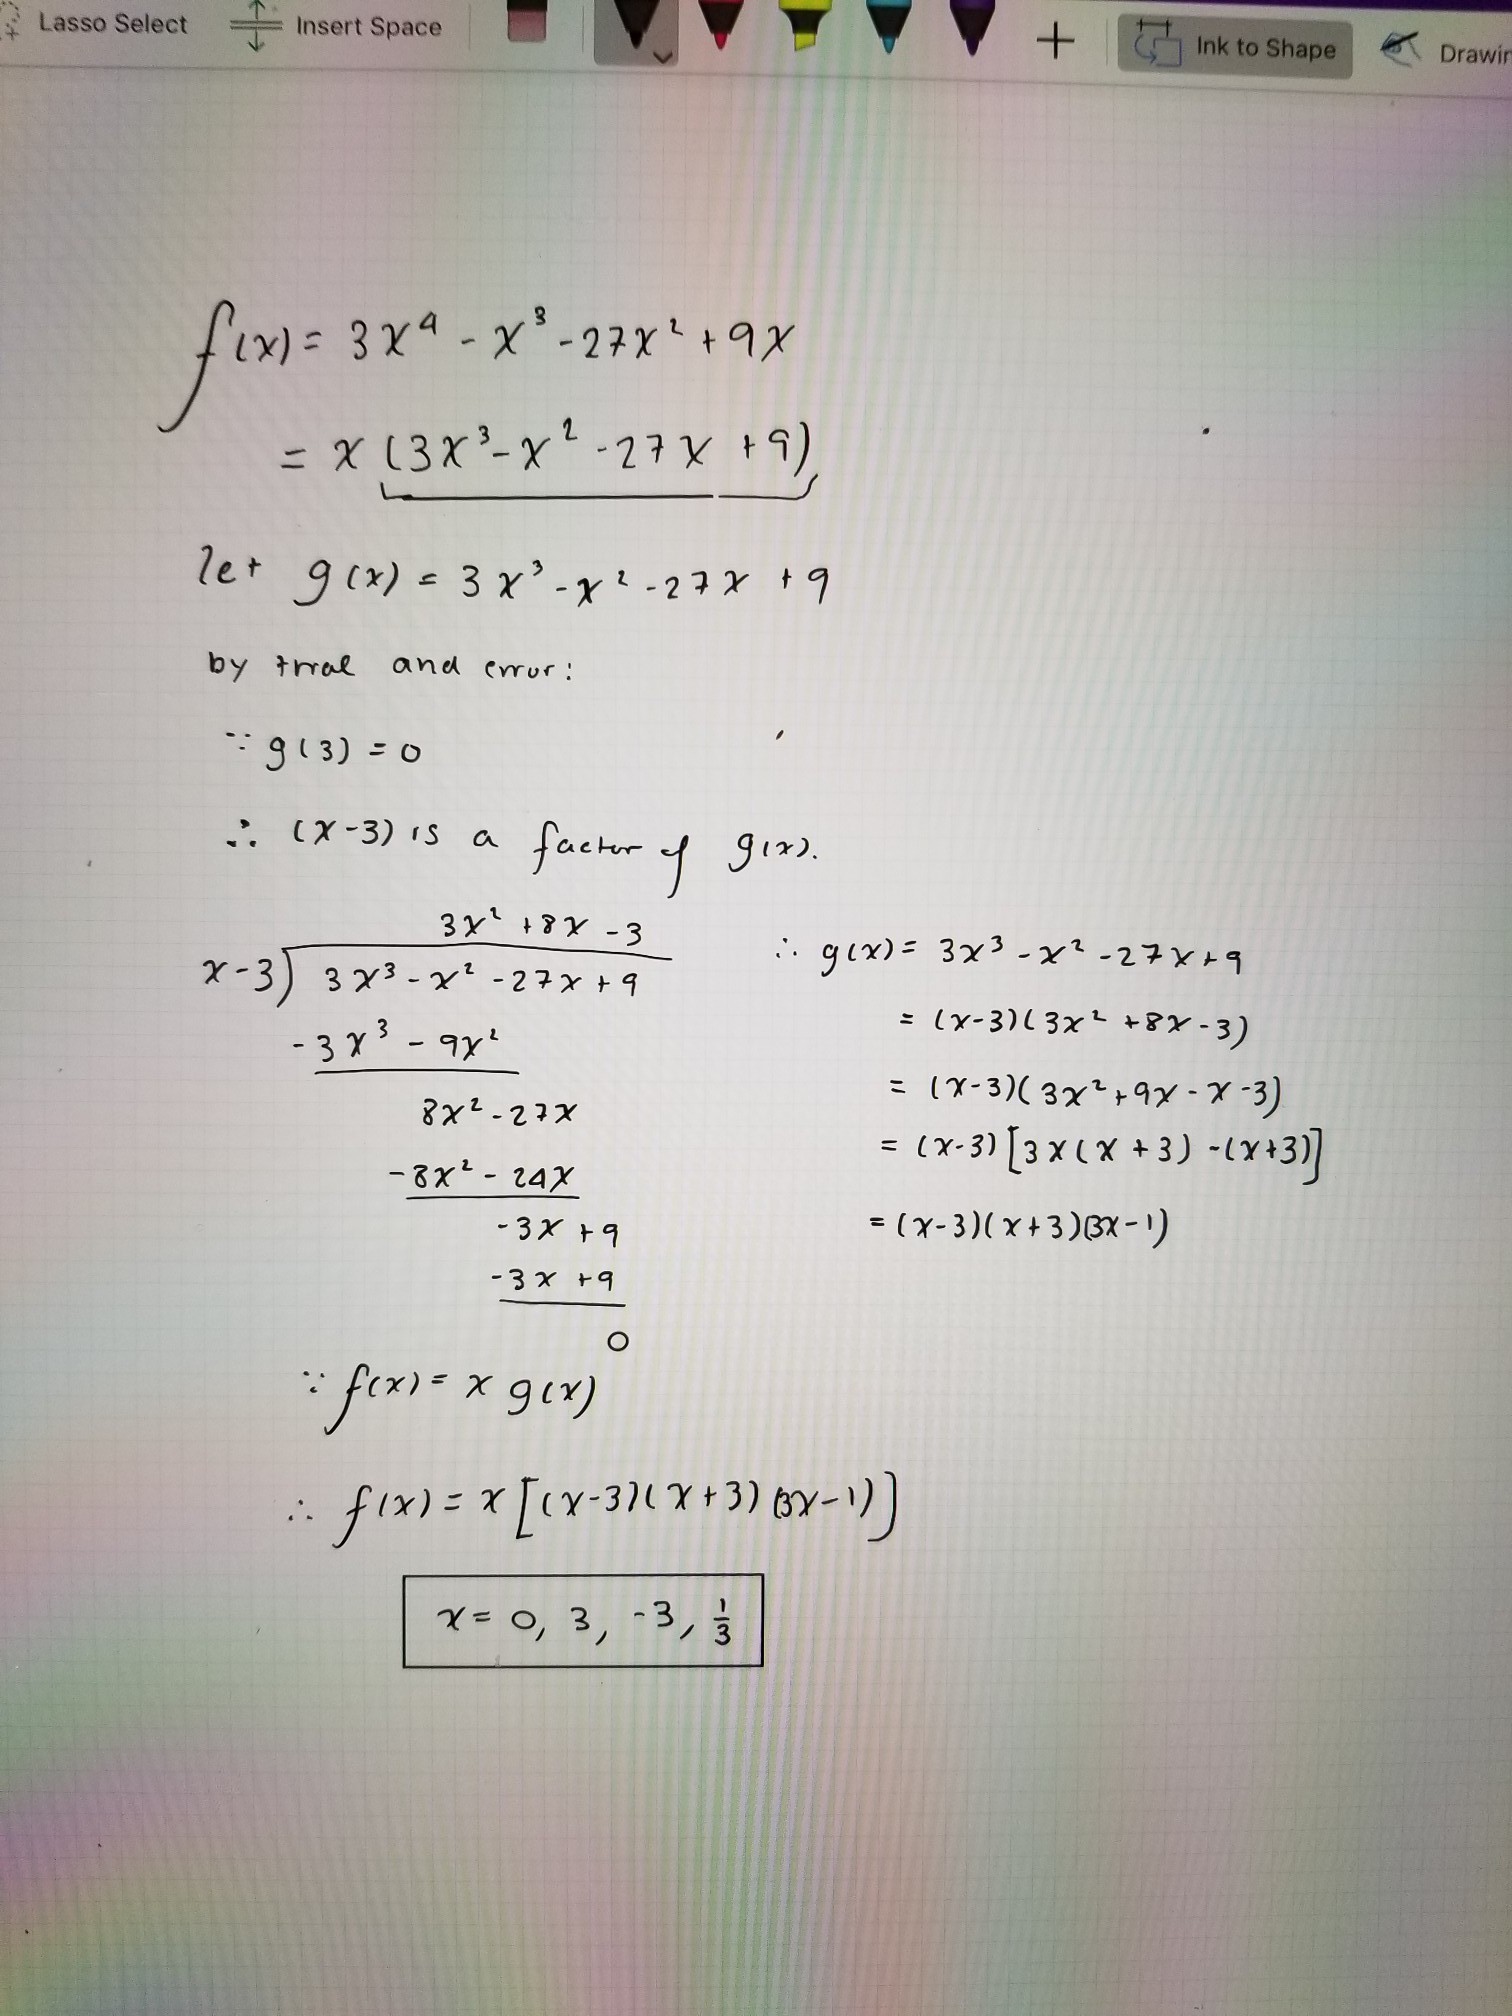 Lasso Select Insert Space + Ink to Shape
f(x) = 3x⁴ - x³ - 27x² + 9x
= x (3x³ - x² - 27x + 9)
let g(x) = 3x³ - x² - 27x + 9
by trial and error:
∵ g(3) = 0
∴ (x-3) is a factor of g(x).
3x² + 8x - 3
x-3) 3x³ - x² - 27x + 9
-3x³ - 9x²
8x² - 27x
-8x² - 24x
-3x + 9
-3x + 9
0
∴ g(x) = 3x³ - x² - 27x + 9
= (x-3)(3x² + 8x - 3)
= (x-3)(3x² + 9x - x - 3)
= (x-3)[3x(x + 3) - (x+3)]
= (x-3)(x+3)(3x-1)
∵ f(x) = x g(x)
∴ f(x) = x [(x-3)(x+3)(3x-1)]
x = 0, 3, -3, 1/3